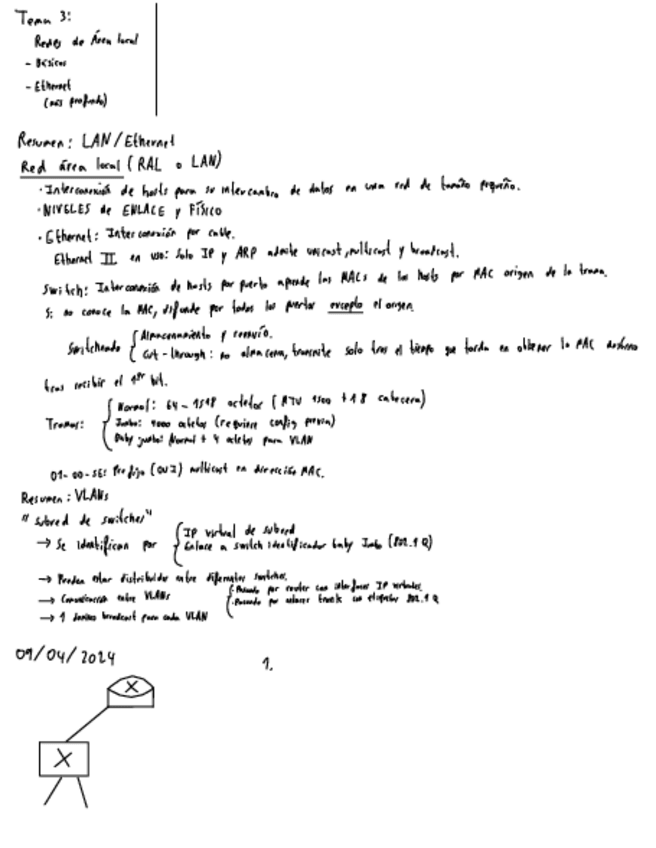 Tema 3:
Redes de Área local
- Básicos
- Ethernet
(más profundo)
Resumen: LAN/Ethernet
Red área local (RAL o LAN)
· Interconexión de hosts para su intercambio de datos en una red de tamaño pequeño.
· NIVELES de ENLACE y FÍSICO
· Ethernet: Interconexión por cable.
Ethernet II en uso: Solo IP y ARP admite unicast, multicast y broadcast.
Switch: Interconexión de hosts por puerto aprende las MACs de los hosts por MAC origen de la trama.
Si no conoce la MAC, difunde por todos los puertos excepto el origen.
Switcheado { Almacenamiento y reenvío.
Cut-through: no almacena, transmite solo tras el tiempo que tarda en obtener la MAC destino
tras recibir el 1er bit.
Tramas: { Normal: 64-1518 octetos (MTU 1500 + 18 cabecera)
Jumbo: 9000 octetos (requiere config previa)
Baby jumbo: Normal + 4 octetos para VLAN
01-00-5E: Prefijo (OUI) multicast en dirección MAC.
Resumen: VLANs
"Subred de switches"
→ Se identifican por { IP virtual de subred
Enlace a switch identificador baby Jumbo (802.1Q)
→ Pueden estar distribuidas entre diferentes switches.
→ Comunicación entre VLANs { · Pasando por router con interfaces IP virtuales.
· Pasando por enlaces trunk con etiquetas 802.1Q
→ 1 dominio broadcast para cada VLAN
09/04/2024
1.